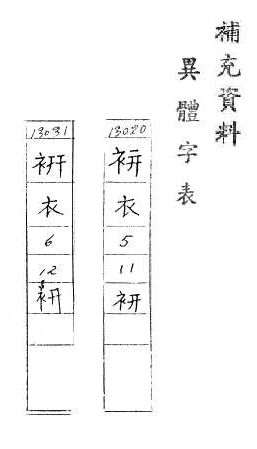 補充資料
異體字表
13020
衣
5
11
13031
衣
6
12